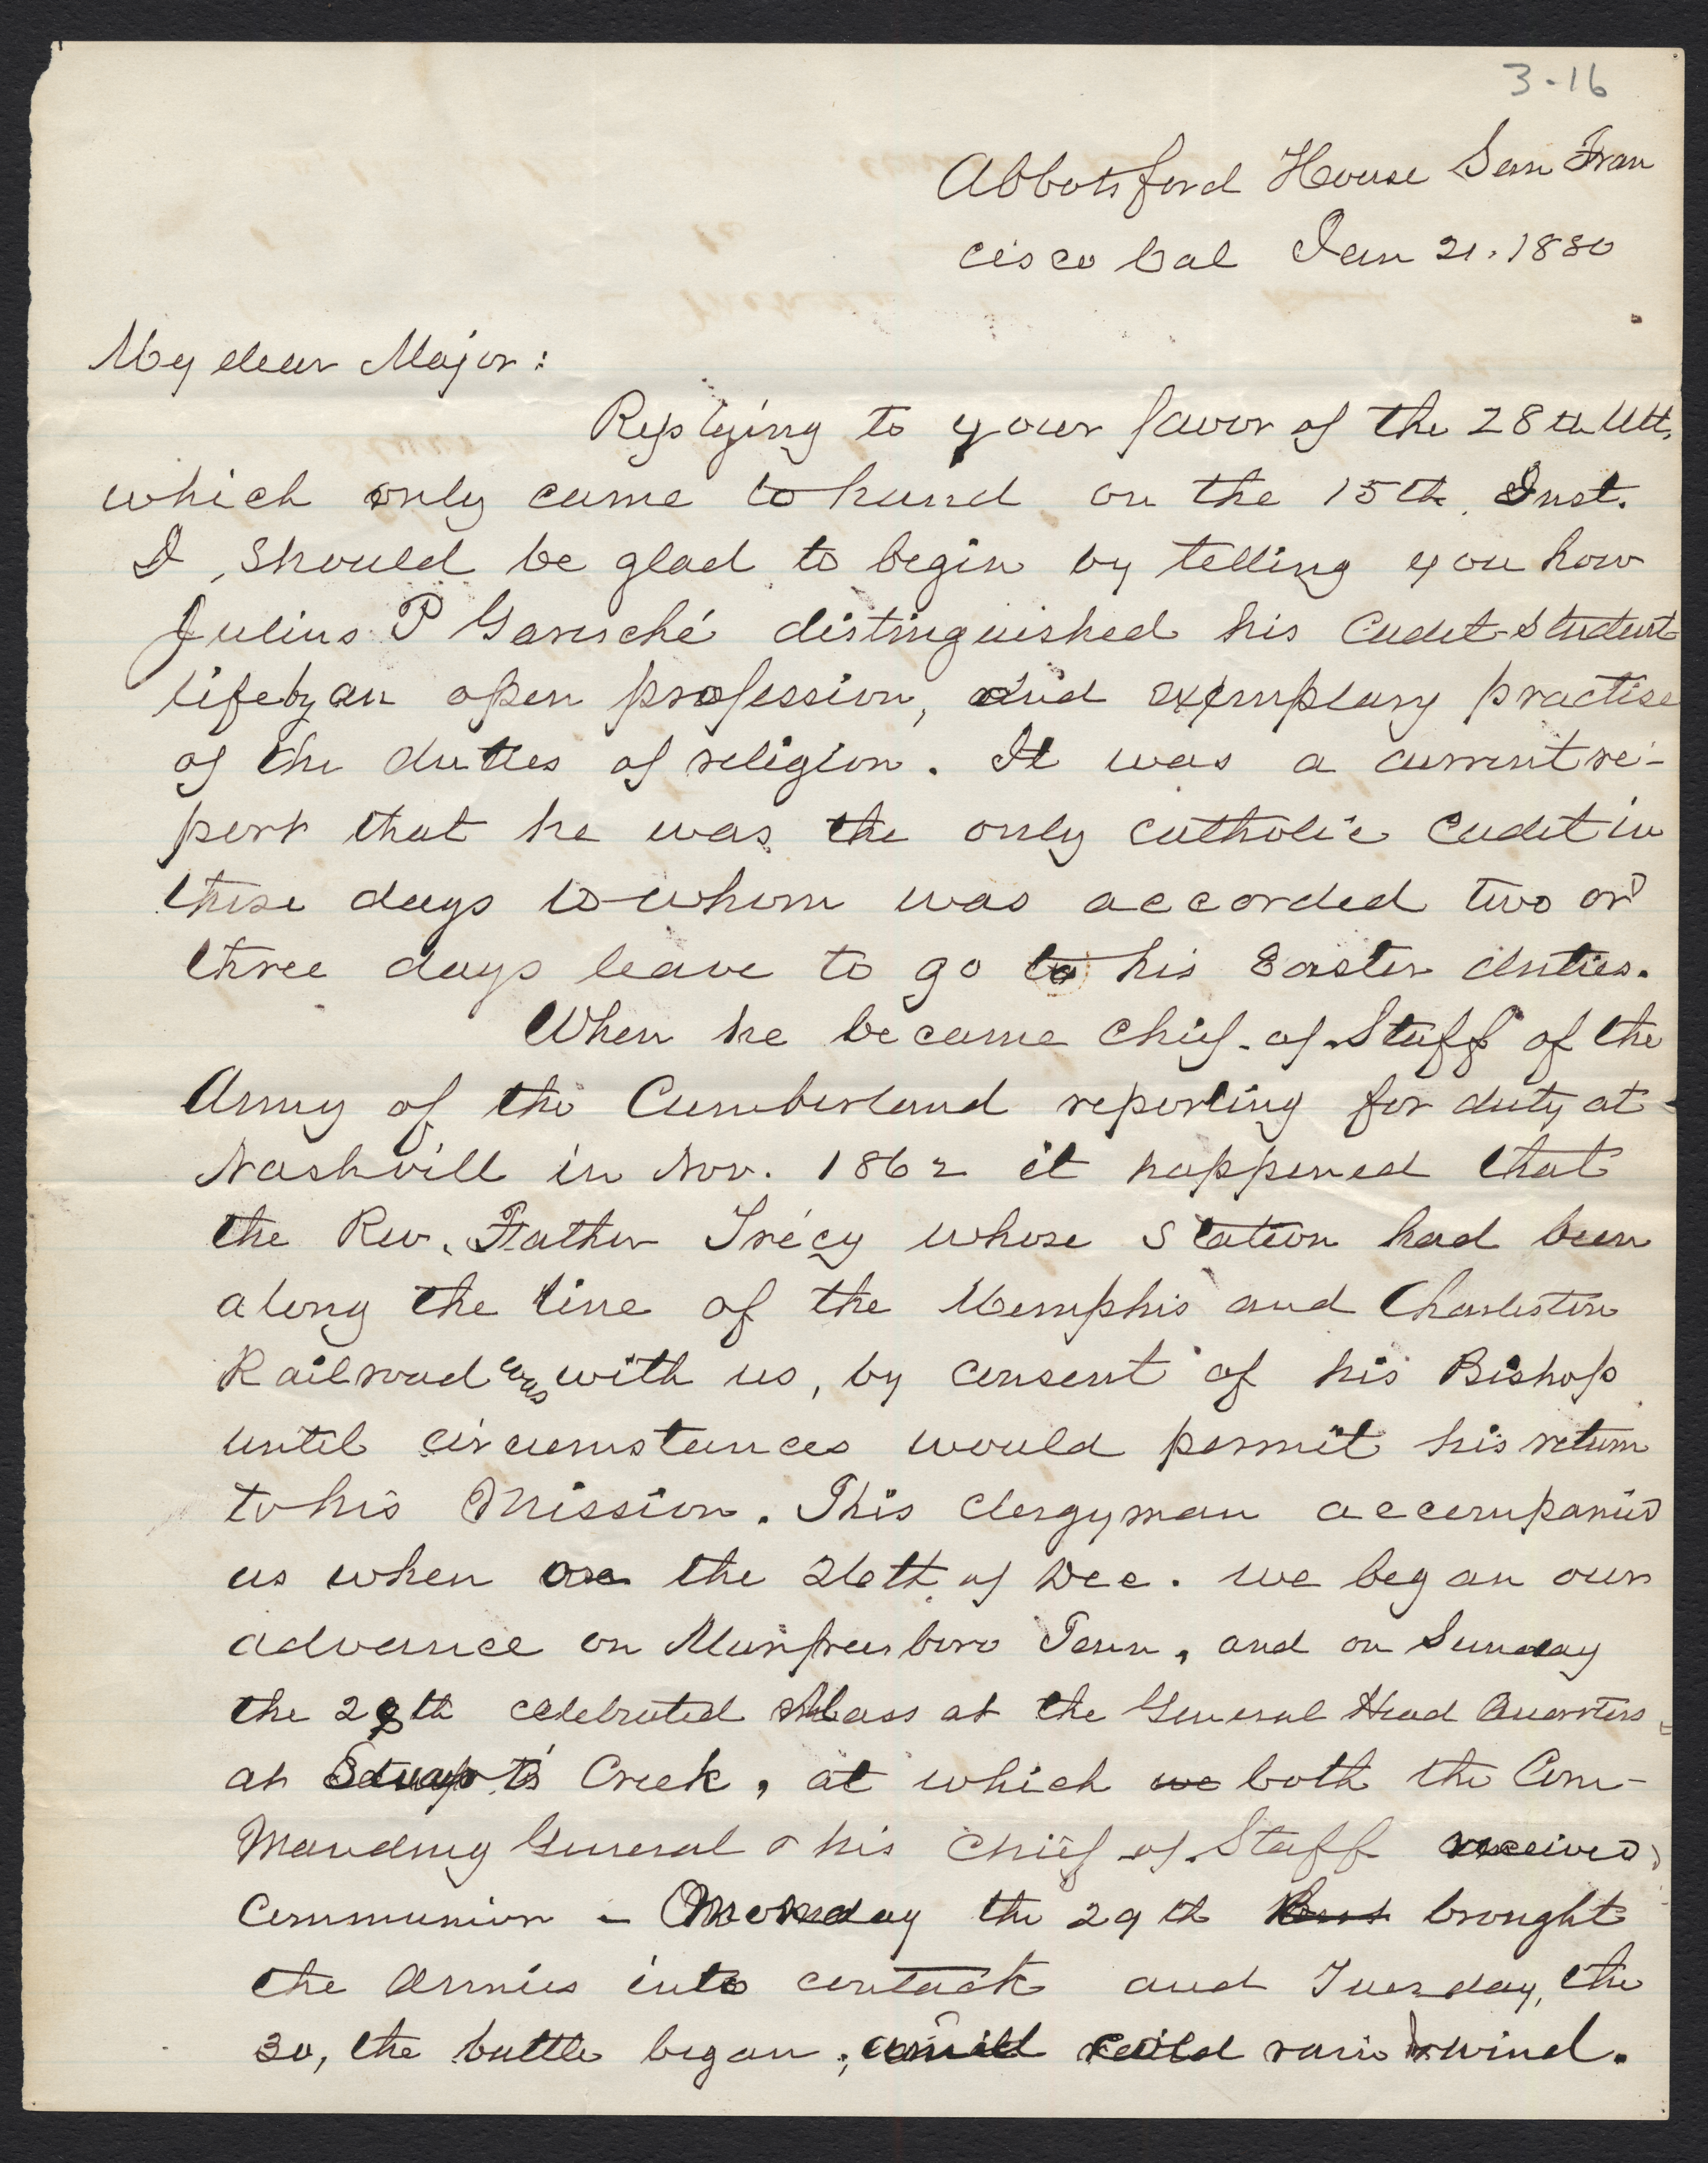 3-16
Abbotsford House San Fran
cisco Cal Jan 21. 1880
My dear Major:
Replying to your favor of the 28th Ult,
which only came to hand on the 15th. Inst.
I, should be glad to begin by telling you how
Julius P Garesché distinguished his Cadet-Student
life by an open profession, and exemplary practise
of the duties of religion. It was a current re-
port that he was the only catholic Cadet in
those days to whom was accorded two or
three days leave to go to his Easter duties.
When he became Chief-of-Staff of the
Army of the Cumberland reporting for duty at
Nashvill in Nov. 1862 it happened that
the Rev. Father Trécy whose station had been
along the line of the Memphis and Charleston
Railroad was with us, by consent of his Bishop
until circumstances would permit his return
to his Mission. This clergyman accompanied
us when on the 26th of Dec. we began our
advance on Murfreesboro Tenn, and on Sunday
the 28th celebrated Mass at the General Head Quarters
at Creek, at which we both the Com-
manding General & his Chief of Staff received
Communion - Monday the 29th brought
the Armies into contact and Tuesday, the
30, the battle began; amid cold rain & wind.